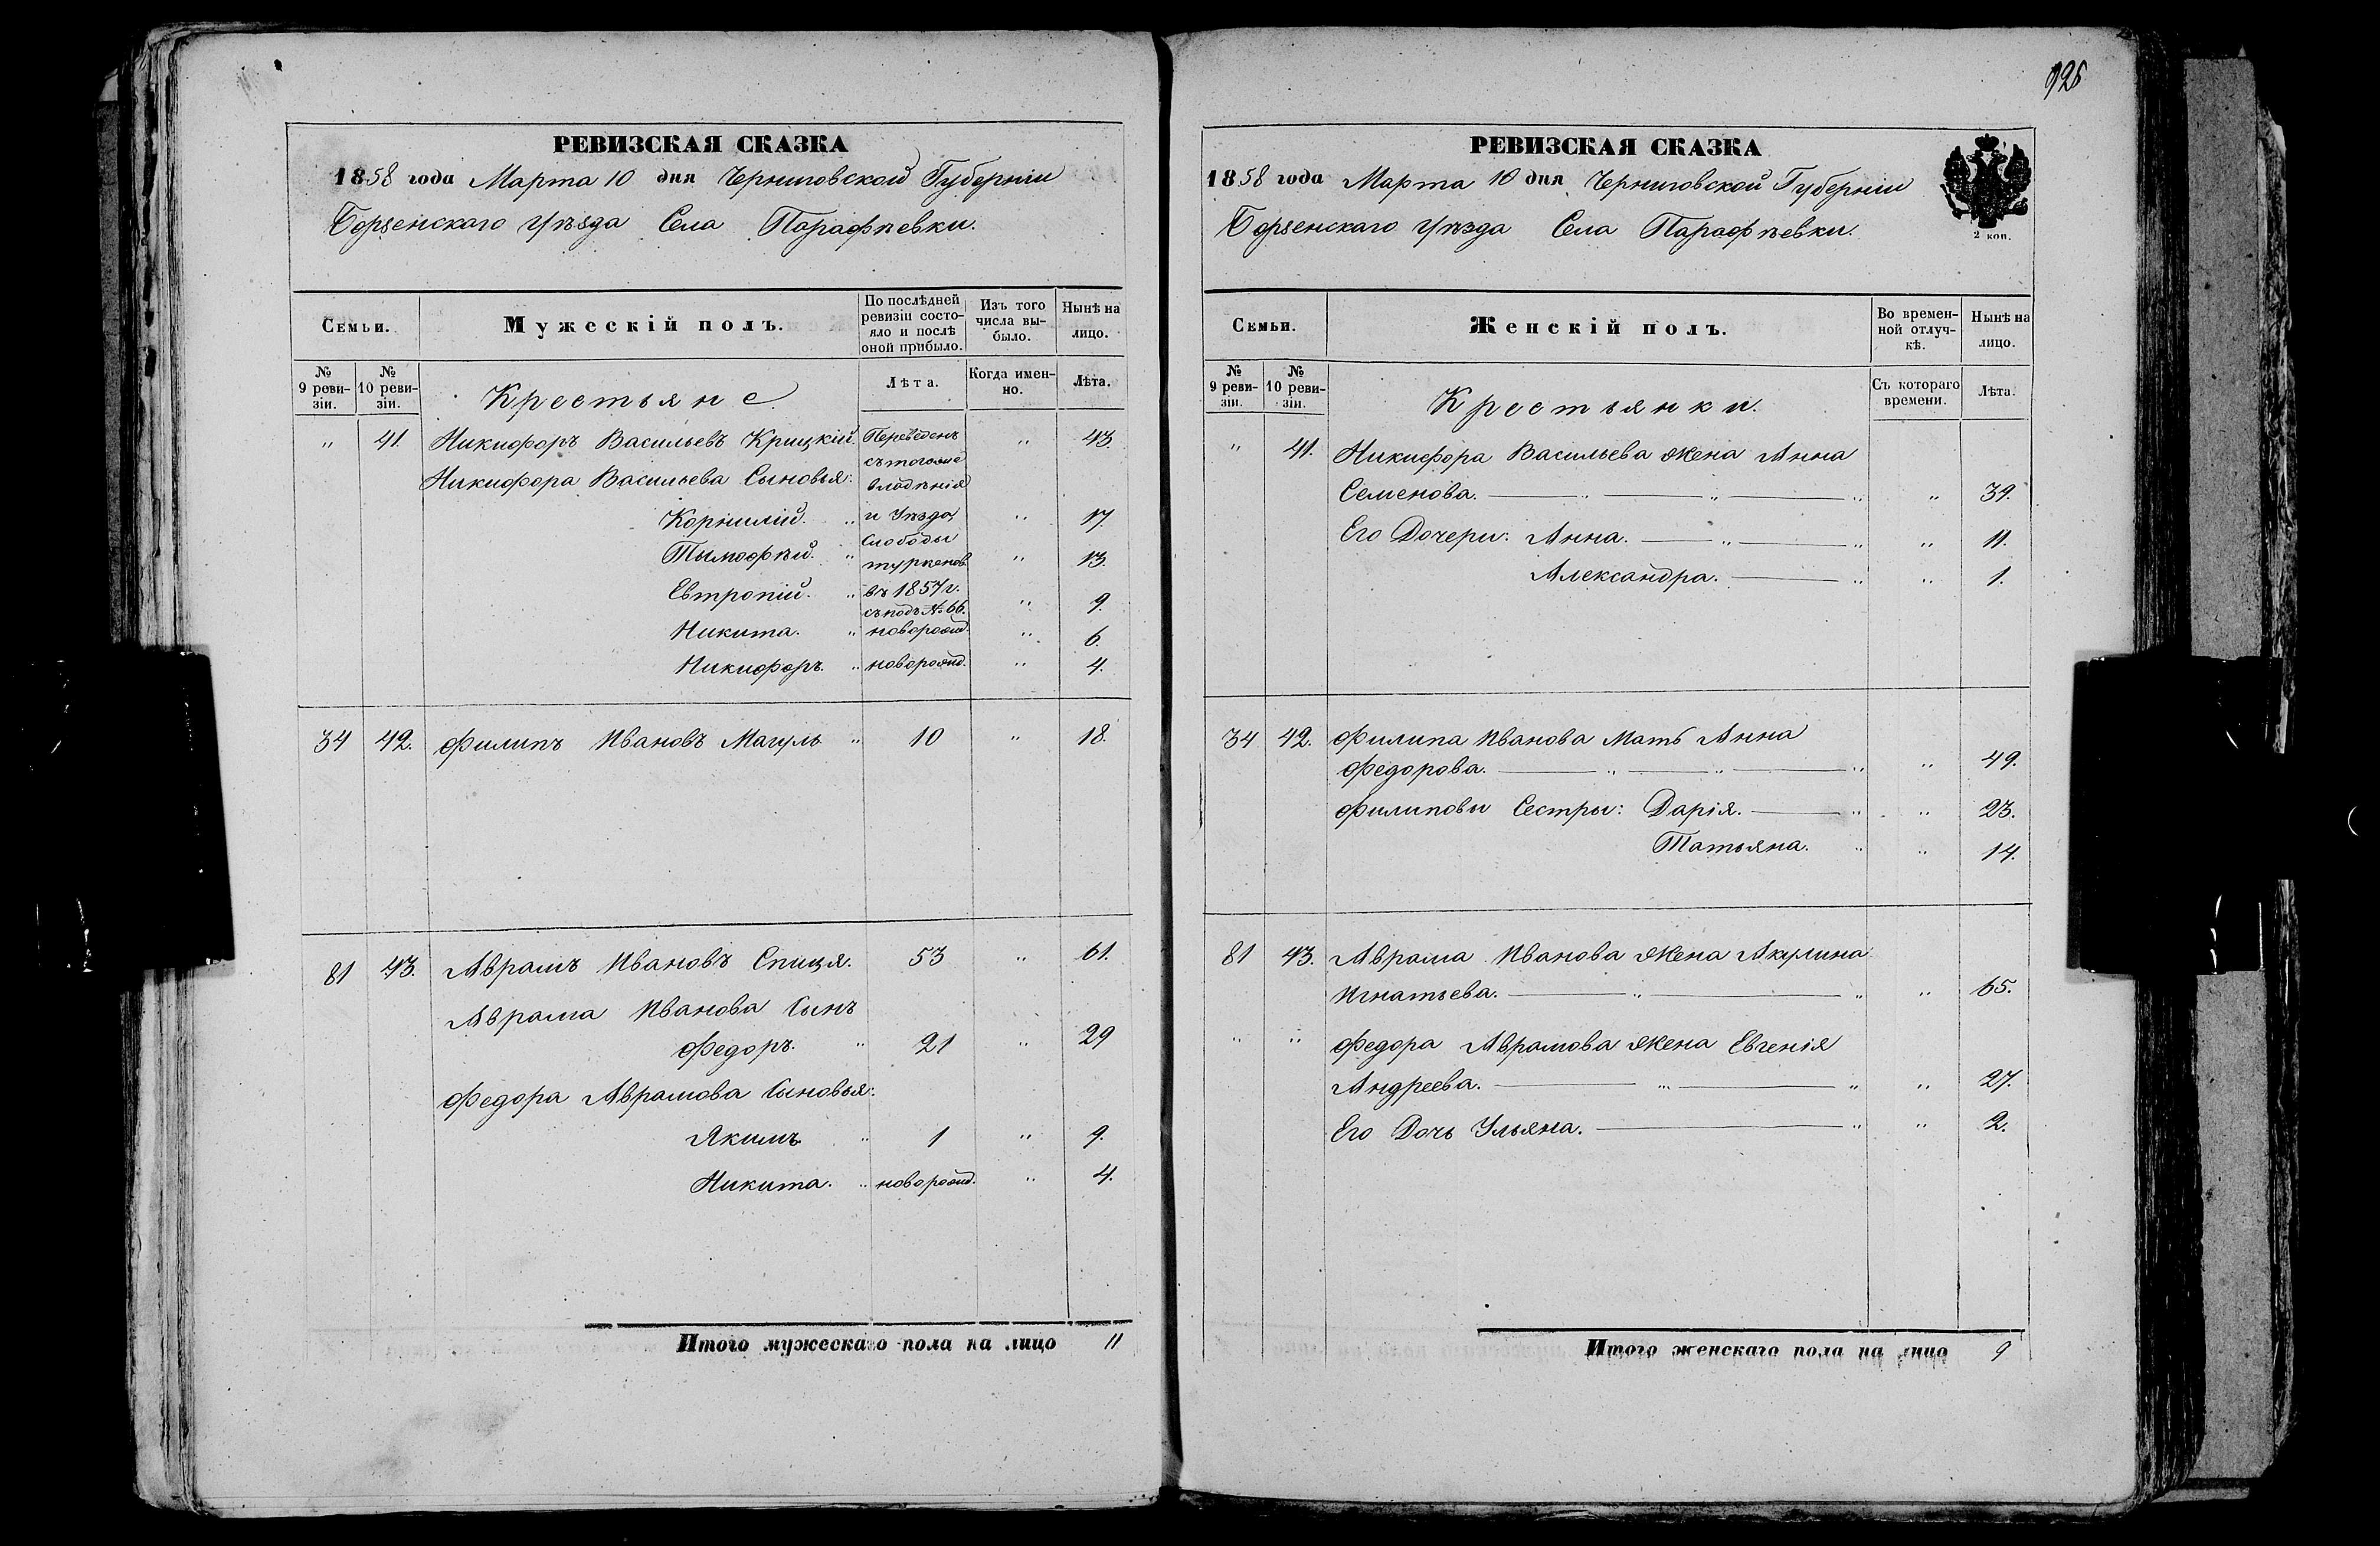 РЕВИЗСКАЯ СКАЗКА
1858 года Марта 10 дня Черниговской Губерніи
Борзенскаго Уѣзда Села Парафѣевки.
Семьи.
Мужескій полъ.
По послѣдней ревизіи состояло и послѣ оной прибыло.
Изъ того числа выбыло.
Нынѣ на лицо.
№ 9 ревизіи.
№ 10 ревизіи.
Крестьяне.
Лѣта.
Когда именно.
Лѣта.
" 41. Никифоръ Васильевъ Крицкій. Переведенъ " 43.
съ тогоже
Никифора Васильева Сыновья: владѣнія
Корнилій. " и Уѣзда, " 17.
Слободы
Тымофѣй. " " 13.
Евтропій. " въ 1857 г. " 9.
съ подъ № 66.
Никита. " новорожд. " 6.
Никифоръ. " новорожд. " 4.
34 42. Филипъ Ивановъ Магуль " 10 " 18.
81 43. Аврамъ Ивановъ Спиця. 53 " 61.
Аврама Иванова Сынъ
Федоръ. " 21 " 29
Федора Аврамова Сыновья:
Якимъ " 1 " 9.
Никита. " новорожд. " 4.
Итого мужескаго пола на лицо 11
РЕВИЗСКАЯ СКАЗКА
1858 года Марта 10 дня Черниговской Губерніи
Борзенскаго Уѣзда Села Парафѣевки.
2 коп.
Семьи.
Женскій полъ.
Во временной отлучкѣ.
Нынѣ на лицо.
№ 9 ревизіи.
№ 10 ревизіи.
Крестьянки.
Съ котораго времени.
Лѣта.
" 41. Никифора Васильева жена Анна
Семенова. " " " " 39.
Его Дочери: Анна. " " " 11.
Александра. " " 1.
34 42. Филипа Иванова Мать Анна
Федорова. " " " " 49.
Филиповы Сестры: Дарія. " " 23.
Татьяна. " " 14.
81 43. Аврама Иванова жена Акулина
Игнатьева. " " " 65.
" " Федора Аврамова жена Евгенія
Андреева. " " " 27.
Его Дочь Ульяна. " " 2.
Итого женскаго пола на лицо 9